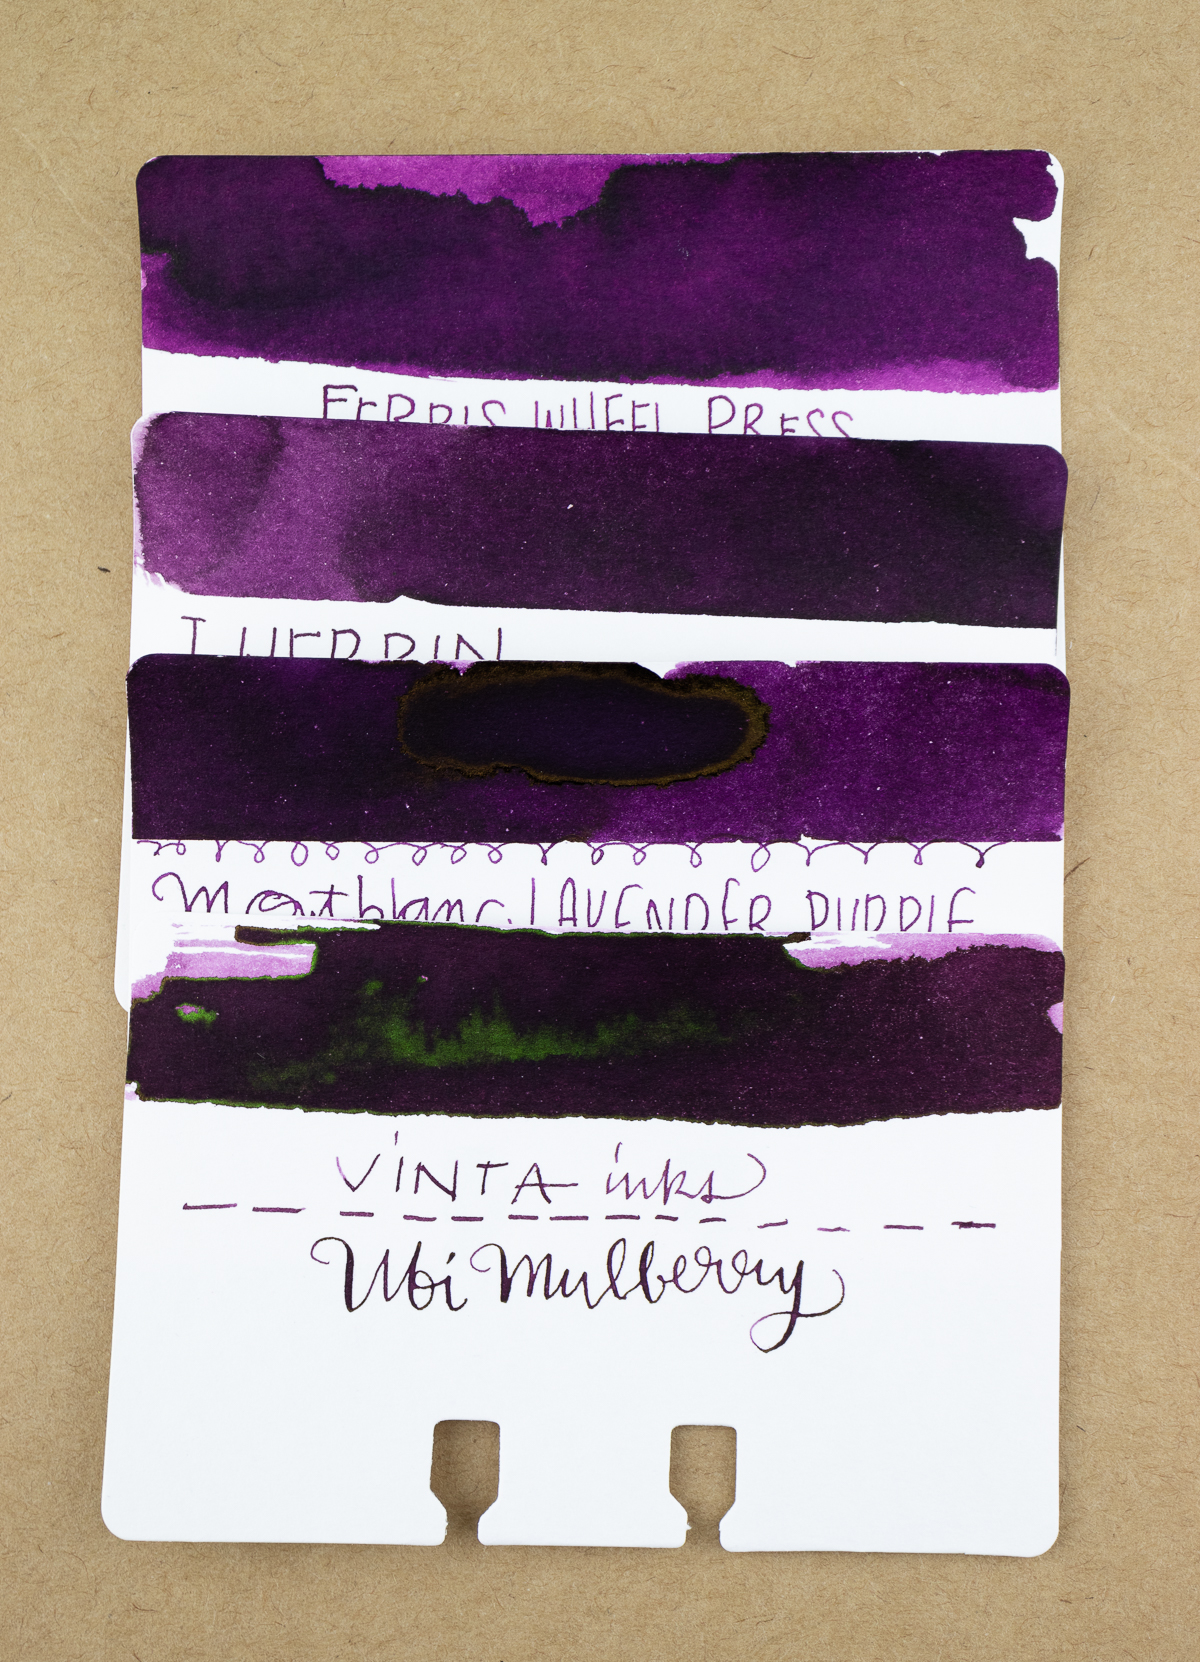 FERRIS WHEEL PRESS
J. HERBIN
Montblanc LAVENDER PURPLE
VINTA inks
Ubi Mulberry